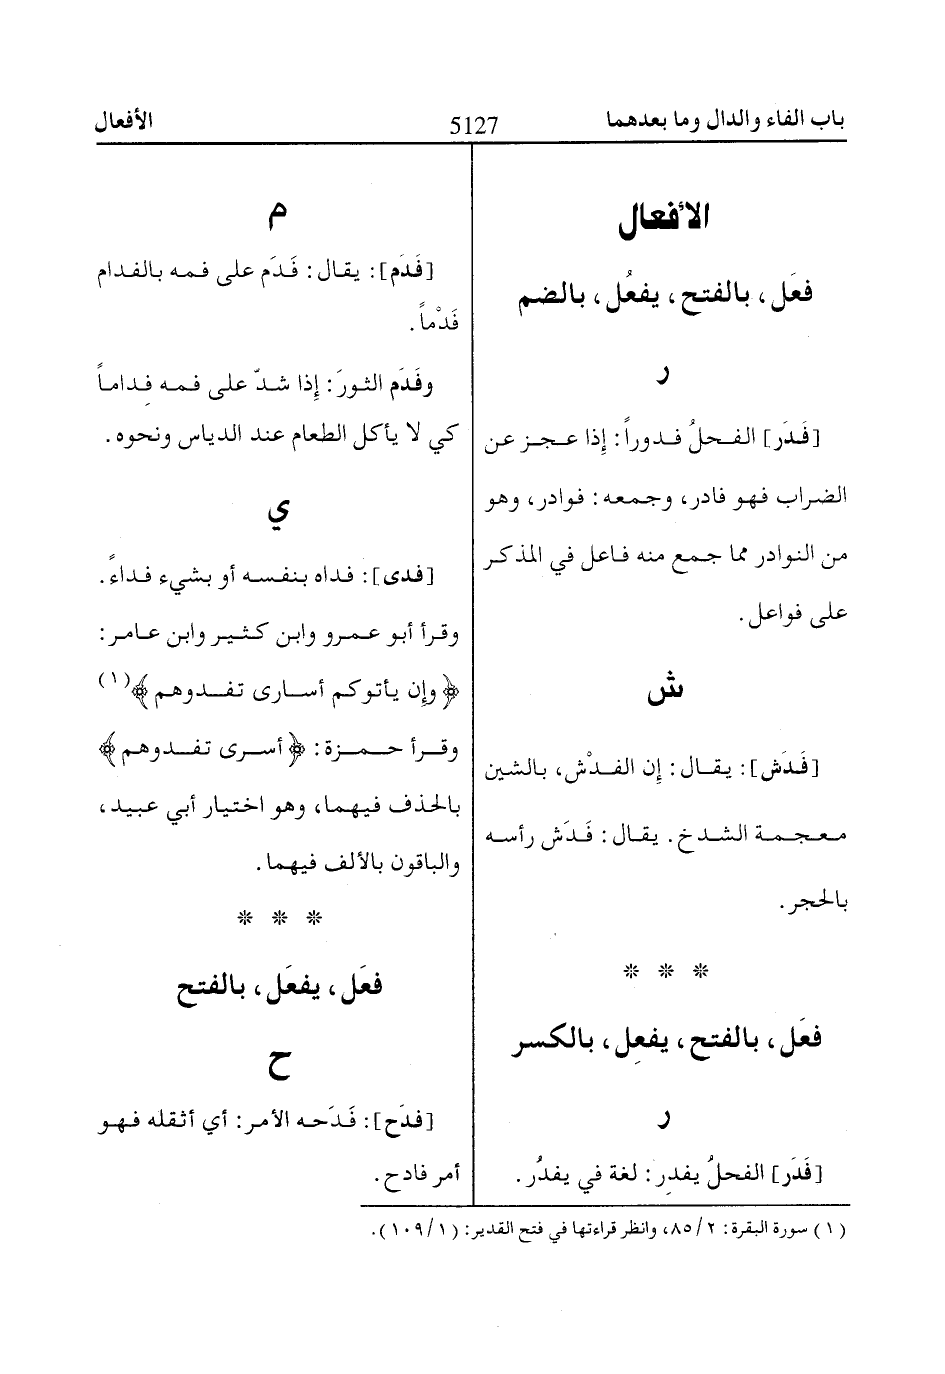 باب الفاء والدال وما بعدهما
5127
الأفعال
الأفعال
فعَل، بالفتح، يفعُل، بالضم
ر
[فَدَر] الفحلُ فدوراً: إذا عجز عن
الضراب فهو فادر، وجمعه: فوادر، وهو
من النوادر مما جمع منه فاعل في المذكر
على فواعل.
ش
[فَدَش]: يقال: إن الفدْش، بالشين
معجمة الشدخ. يقال: فَدَش رأسه
بالحجر.
* * *
فعَل، بالفتح، يفعِل، بالكسر
ر
[فَدَر] الفحلُ يفدِر: لغة في يفدُر.
م
[فَدَم]: يقال: فَدَم على فمه بالفدام
فَدْماً.
وفَدَم الثورَ: إذا شدّ على فمه فِداماً
كي لا يأكل الطعام عند الدياس ونحوه.
ي
[فدى]: فداه بنفسه أو بشيء فداءً.
وقرأ أبو عمرو وابن كثير وابن عامر:
﴿وإن يأتوكم أسارى تفدوهم﴾(١)
وقرأ حمزة: ﴿أسرى تفدوهم﴾
بالحذف فيهما، وهو اختيار أبي عبيد،
والباقون بالألف فيهما.
* * *
فعَل، يفعَل، بالفتح
ح
[فدَح]: فَدَحه الأمر: أي أثقله فهو
أمر فادح.
(١) سورة البقرة: ٢/ ٨٥، وانظر قراءتها في فتح القدير: (١/ ١٠٩).